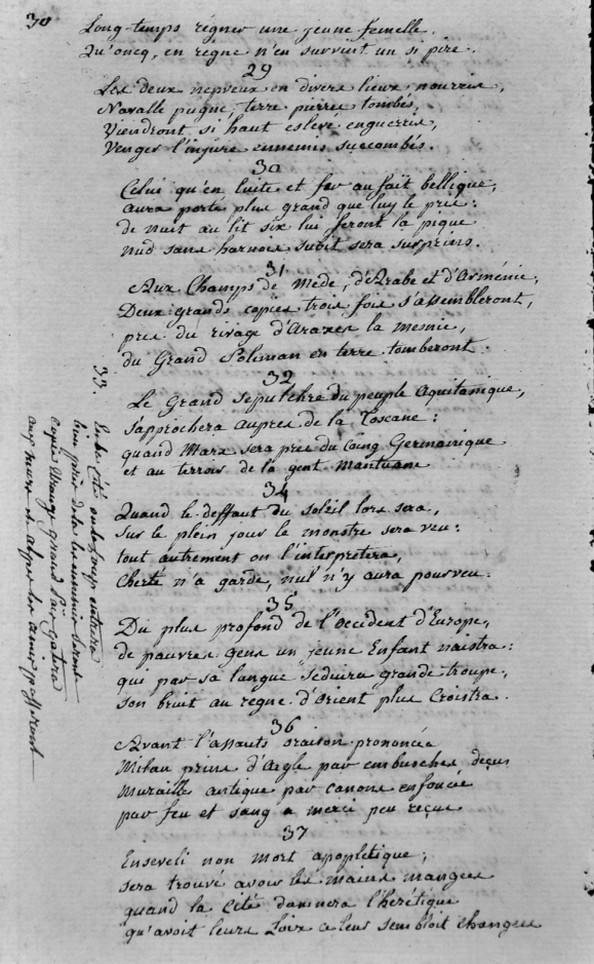 30
Long-temps regner une jeune femelle.
Qu'oncq, en regne n'en survint un si pire.
29
Les deux nepveux en divers lieux, nourris,
Navalle pugne, terre pierres tombés,
Viendront si haut eslevé enguerris,
Venger l'injure ennemis succombés.
30
Celui qu'en luite et fer au fait bellique,
aura porté plus grand que luy le pris:
de nuit au lit six lui feront la pique
nud sans harnois subit sera surprins.
31
Aux Champs de Mede, d'Arabe et d'Arménie,
Deux grands copies trois fois s'assembleront,
pres du rivage d'Araxes la mesnie,
du Grand Soliman en terre tomberont.
32
Le Grand Sepulchre du peuple Aquitanique,
s'approchera aupres de la Toscane:
quand Mars sera pres du Coing Germanique
et au terroir de la gent Mantuane
33.
En la Cité ou le Loup entrera
bien près de la les ennemis seront
Copie grand païs gatera
aux murs et alpes les amis passeront
34
Quand le deffaut du soleil lors sera,
sur le plein jour le monstre sera veu:
tout autrement on l'interpretera,
Cherté n'a garde, nul n'y aura pourveu.
35
Du plus profond de l'Occident d'Europe,
de pauvres gens un jeune Enfant naistra:
qui par sa langue seduira grande troupe,
son bruit au regne d'Orient plus Croistra.
36
Avant l'assauts oraison prononcée
Milan prins d'Aigle par embusches deçus
Muraille antique par canons enfoncée
par feu et sang a merci peu reçus
37
Enseveli non mort apopletique,
sera trouvé avoir les mains mangées
quand la Cité damnera l'herétique
qu'avoit leurs Loix ce leur sembloit changees